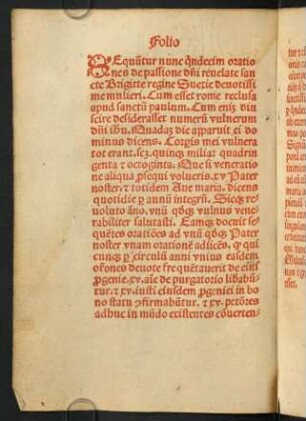 Folio
SEquūtur nunc q̄ndecim oratio
nes de passione dn̄i reuelate san
cte Brigitte regine Suecie deuotissi
me mulieri. Cum esset rome reclusa
apud sanctū paulum. Cum eniꝫ diu
scire desiderasset numerū vulnerum
dn̄i ih̄u. Quadaꝫ die apparuit ei do
minus dicens. Corpis mei vulnera
tot erant .scꝫ. quinqꝫ miliaꝫ quadrin
genta ⁊ octoginta. Que si ī veneratio
ne aliqua ꝓsequi volueris .xv. Pater
noster. ⁊ totidem Aue maria. dicens
quotidie ꝑ annū integrū. Sicqꝫ re
uoluto āno. vnū qd̄qꝫ vulnus vene
rabiliter salutasti. Eamqꝫ docuit se
quētes oratiões ad vnū qd̄qꝫ Pater
noster vnam orationē adiicēs. ꝙ qui
cunqꝫ ꝑ circulū anni vnius easdem
or̄ones deuote frequētauerit de eiusꝫ
ꝓgenie .xv. aīe de purgatorio libabū-
tur. ⁊ .xv. iusti eiusdem ꝓgeniei in bo
no statu ꝯfirmabūtur. ⁊ .xv. pctōres
adhuc in mūdo existentes cōuerten-